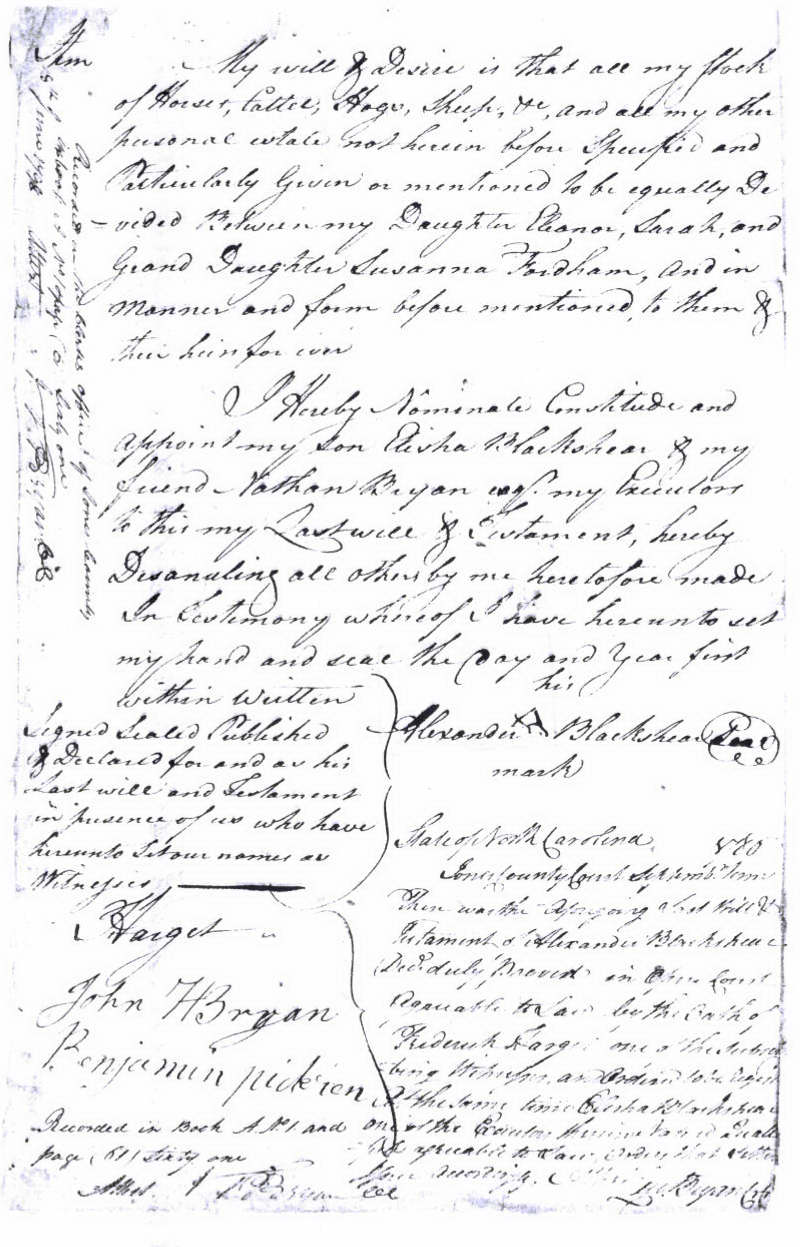 Item My will & Desire is that all my Stock
of Horses, Cattel, Hogs, Sheep, &c, and all my other
personal estate not herein before Specified and
Particularly Given or mentioned to be equally De
=vided Between my Daughter Eleanor, Sarah, and
Grand Daughter Susanna Fordham, and in
manner and form before mentioned, to them &
their heirs for ever
I Hereby Nominate Constitude and
appoint my son Elisha Blackshear & my
friend Nathan Bryan esqr. my Executors
to this my Last will & Testament, hereby
Desanuling all others by me heretofore made
In Testimony whereof I have hereunto set
my hand and seal the Day and Year first
within written
his
Alexander A Blackshear Seal
mark
Signed Sealed Published
& Declared for and as his
Last will and Testament
in presence of us who have
hereunto Set our names as
Witnesses
F Harget
John H Bryan
Benjamin pickren
Recorded in Book A No 1. and
page (61) Sixty one
Attest
State of North Carolina
Jones County Court Septemb. Term
Then was the Aforegoing Last Will &
Testament of Alexander Blackshear
Decd. duly Proved in Open Court
Agreeable to Law by the Oath of
Frederick Harget one of the Subscri
bing Witnesses, and Ordered to be
At the same time Elisha Blackshear
one of the Executors
agreeable to Law, Ordered that Letters
Issue accordingly.
Recorded in the Clerks office of Jones County
in Book A No 1 page 61 Sixty one
Attest